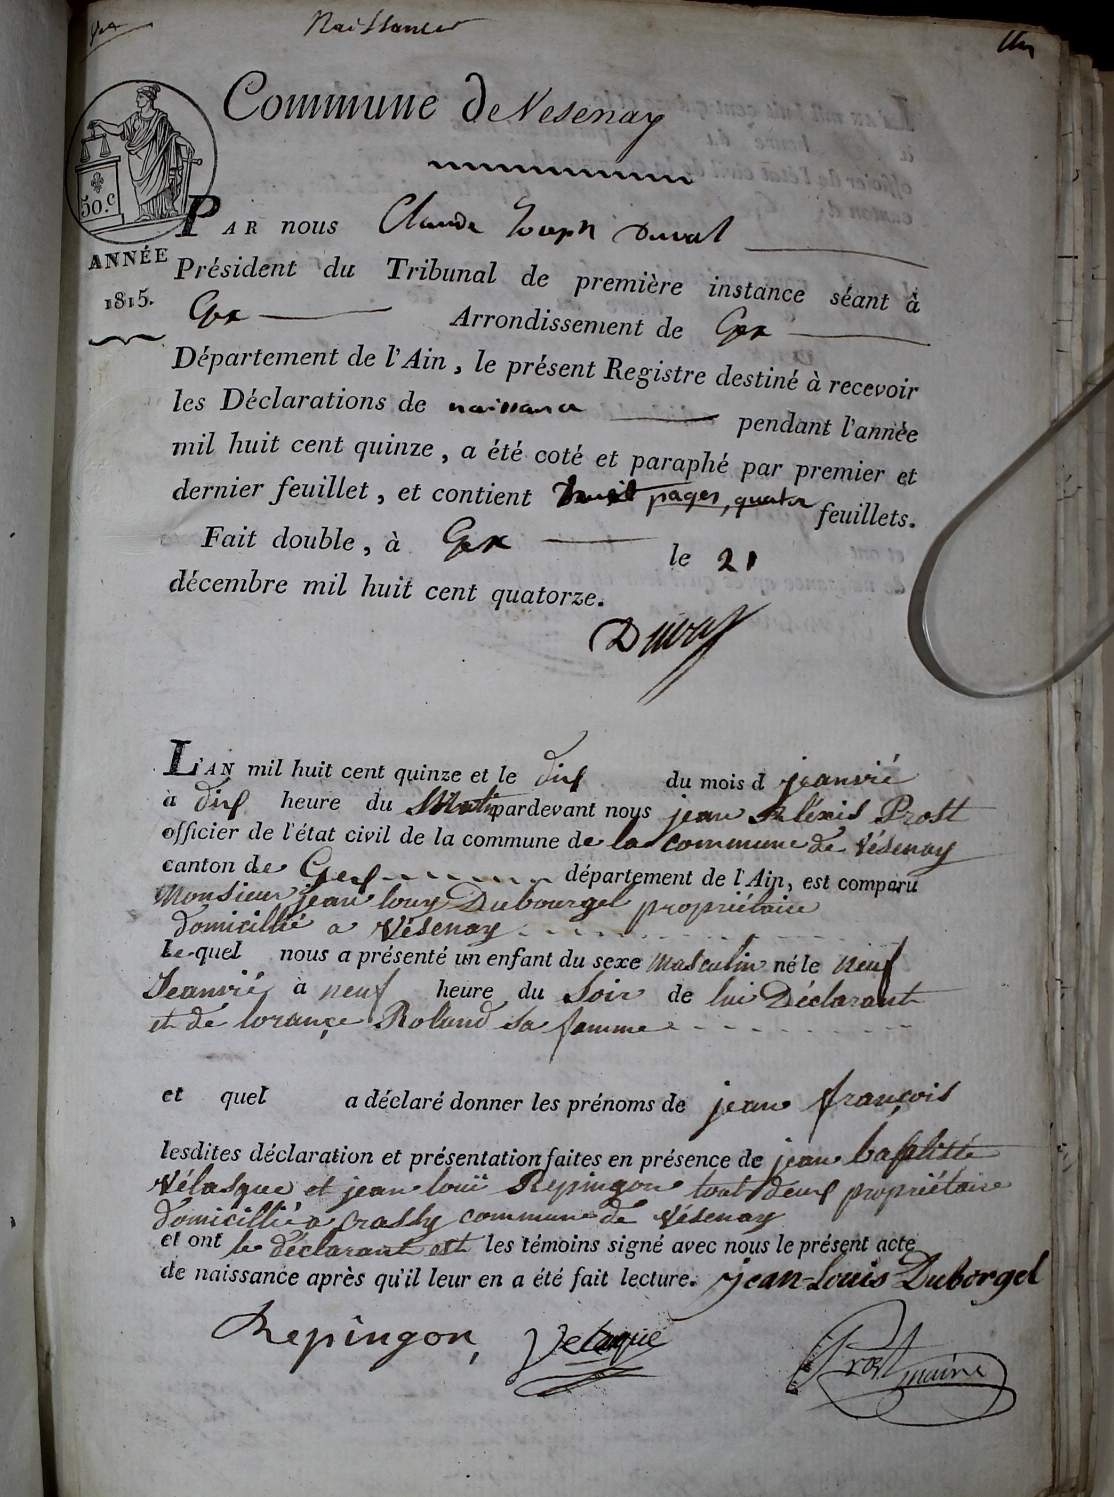 Naissances
Commune de Vesenay
50.c
ANNÉE
1815.
PAR nous Claude Joseph Duval
Président du Tribunal de première instance séant à
Gex Arrondissement de Gex
Département de l'Ain, le présent Registre destiné à recevoir
les Déclarations de naissance pendant l'année
mil huit cent quinze, a été coté et paraphé par premier et
dernier feuillet, et contient huit pages, quatre feuillets.
Fait double, à Gex le 21
décembre mil huit cent quatorze.
Duval
L'AN mil huit cent quinze et le dix du mois d jeanvié
à dix heure du Matin pardevant nous jean Aléxis Prost
officier de l'état civil de la commune de la commune de Vésenay
canton de Gex département de l'Ain, est comparu
Monsieur jean louy Dubourgel propriétaire
domicillié a Vésenay
le-quel nous a présenté un enfant du sexe Masculin né le Neuf
Jeanvié à neuf heure du Soir de lui Déclarant
et de lorançe Roland sa famme
et quel a déclaré donner les prénoms de jean françois
lesdites déclaration et présentation faites en présence de jean baptiste
Vélasque et jean louï Repingon tout deux propriétaire
domicillié a Crassy commune de Vésenay
et ont le déclarant est les témoins signé avec nous le présent acte
de naissance après qu'il leur en a été fait lecture. jean-Louis Duborgel
Repingon, Velasque
Prost maire